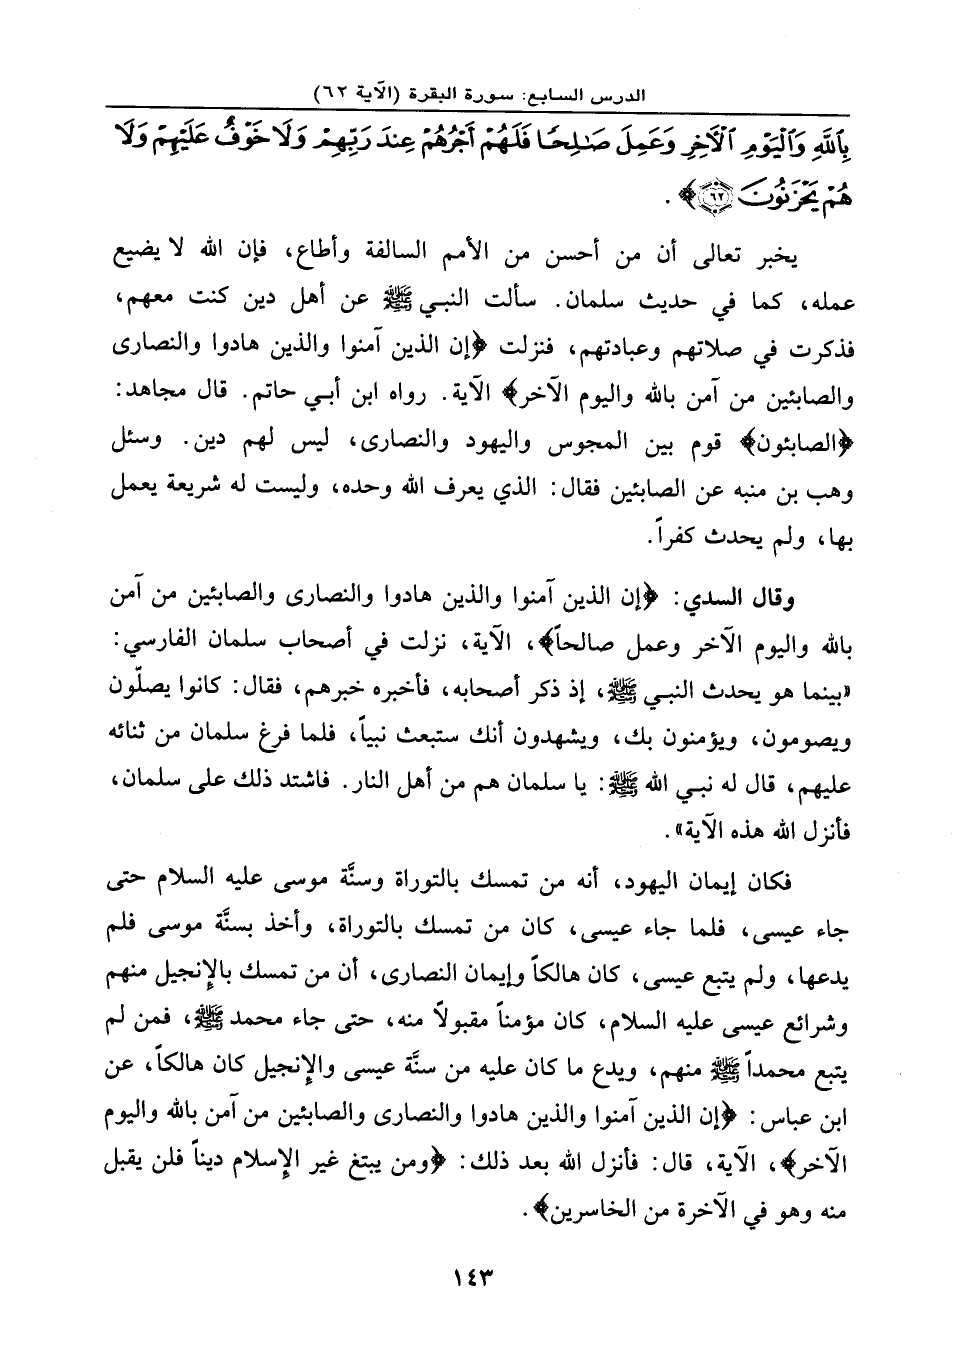 الدرس السابع: سورة البقرة (الآية ٦٢)
بِٱللَّهِ وَٱلْيَوْمِ ٱلْآخِرِ وَعَمِلَ صَـٰلِحًا فَلَهُمْ أَجْرُهُمْ عِندَ رَبِّهِمْ وَلَا خَوْفٌ عَلَيْهِمْ وَلَا
هُمْ يَحْزَنُونَ ﴿٦٢﴾﴾.
يخبر تعالى أن من أحسن من الأمم السالفة وأطاع، فإن الله لا يضيع
عمله، كما في حديث سلمان. سألت النبي ﷺ عن أهل دين كنت معهم،
فذكرت في صلاتهم وعبادتهم، فنزلت ﴿إن الذين آمنوا والذين هادوا والنصارى
والصابئين من آمن بالله واليوم الآخر﴾ الآية. رواه ابن أبي حاتم. قال مجاهد:
﴿الصابئون﴾ قوم بين المجوس واليهود والنصارى، ليس لهم دين. وسئل
وهب بن منبه عن الصابئين فقال: الذي يعرف الله وحده، وليست له شريعة يعمل
بها، ولم يحدث كفراً.
وقال السدي: ﴿إن الذين آمنوا والذين هادوا والنصارى والصابئين من آمن
بالله واليوم الآخر وعمل صالحاً﴾، الآية، نزلت في أصحاب سلمان الفارسي:
«بينما هو يحدث النبي ﷺ، إذ ذكر أصحابه، فأخبره خبرهم، فقال: كانوا يصلّون
ويصومون، ويؤمنون بك، ويشهدون أنك ستبعث نبياً، فلما فرغ سلمان من ثنائه
عليهم، قال له نبي الله ﷺ: يا سلمان هم من أهل النار. فاشتد ذلك على سلمان،
فأنزل الله هذه الآية».
فكان إيمان اليهود، أنه من تمسك بالتوراة وسنَّة موسى عليه السلام حتى
جاء عيسى، فلما جاء عيسى، كان من تمسك بالتوراة، وأخذ بسنَّة موسى فلم
يدعها، ولم يتبع عيسى، كان هالكاً وإيمان النصارى، أن من تمسك بالإنجيل منهم
وشرائع عيسى عليه السلام، كان مؤمناً مقبولاً منه، حتى جاء محمد ﷺ، فمن لم
يتبع محمداً ﷺ منهم، ويدع ما كان عليه من سنَّة عيسى والإنجيل كان هالكاً، عن
ابن عباس: ﴿إن الذين آمنوا والذين هادوا والنصارى والصابئين من آمن بالله واليوم
الآخر﴾، الآية، قال: فأنزل الله بعد ذلك: ﴿ومن يبتغ غير الإسلام ديناً فلن يقبل
منه وهو في الآخرة من الخاسرين﴾.
١٤٣